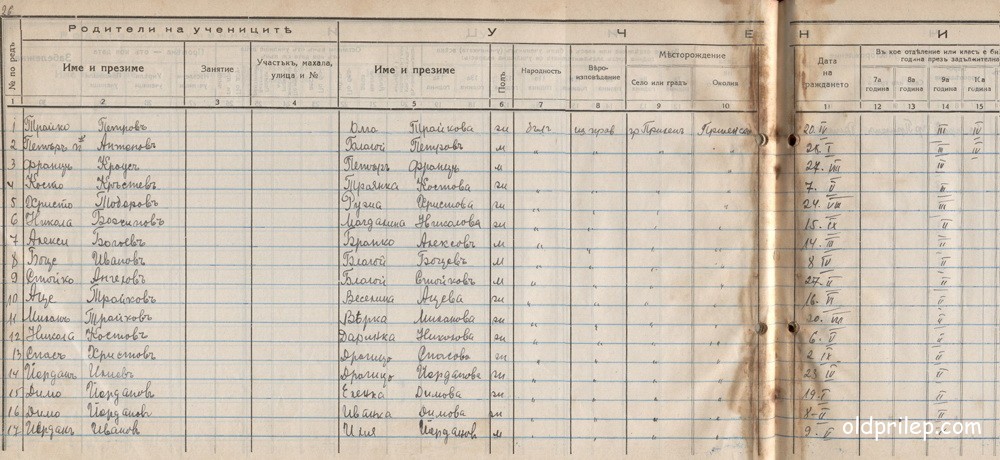 26
Родители на ученицитѣ У Ч Е Н И
№ по редъ Име и презиме Занятие Участъкъ, махала, улица и № Име и презиме Полъ Народность Вѣроизповѣдание Мѣсторождение Село или градъ Околия Дата на раждането Въ кое отдѣление или класъ е би година презъ задължителна 7а година 8а година 9а година 10а година
1 2 3 4 5 6 7 8 9 10 11 12 13 14 15
1 Трайко Петровъ Трайкова ж бълг. изт прав гр Прилепъ 20. IV III IV
2 Петъръ Антоновъ Благой Петровъ м " " " " I III IV
3 Францъ Петъръ Францъ м 27. VIII
4 Косто Кръстевъ Траянка Костова ж " " " " 7. II II
5 Христо Тодоровъ Ружа Христова ж " " " " 24. VIII III
6 Никола Магдалина Николова ж " " " " 15. IX II
7 Алекси Богоевъ Бранко Алексовъ м " " " " 14. III II
8 Боце Ивановъ Благой Боцевъ м " " " " 8 IV II
9 Стойко Ангеловъ Благой Стойковъ м " " " " 27. II II
10 Аце Трайковъ Веселина Ацева ж " " " " 16. VI II
11 Миланъ Трайковъ Вѣрка Миланова ж " " " " 20. VII II
12 Никола Костовъ Даринка Николова ж " " " " 6. V II
13 Спасъ Христовъ Драгица Спасова ж " " " " 2 IX II
14 Йорданъ Илиевъ Драгица Йорданова ж " " " " 23 IV II
15 Димо Йордановъ Еленка Димова ж " " " " 19. I II
16 Димо Йордановъ Иванка Димова ж " " " " 8 - II II
17 Йорданъ Ивановъ Илия Йордановъ м " " " " 9. II II
oldprilep.com